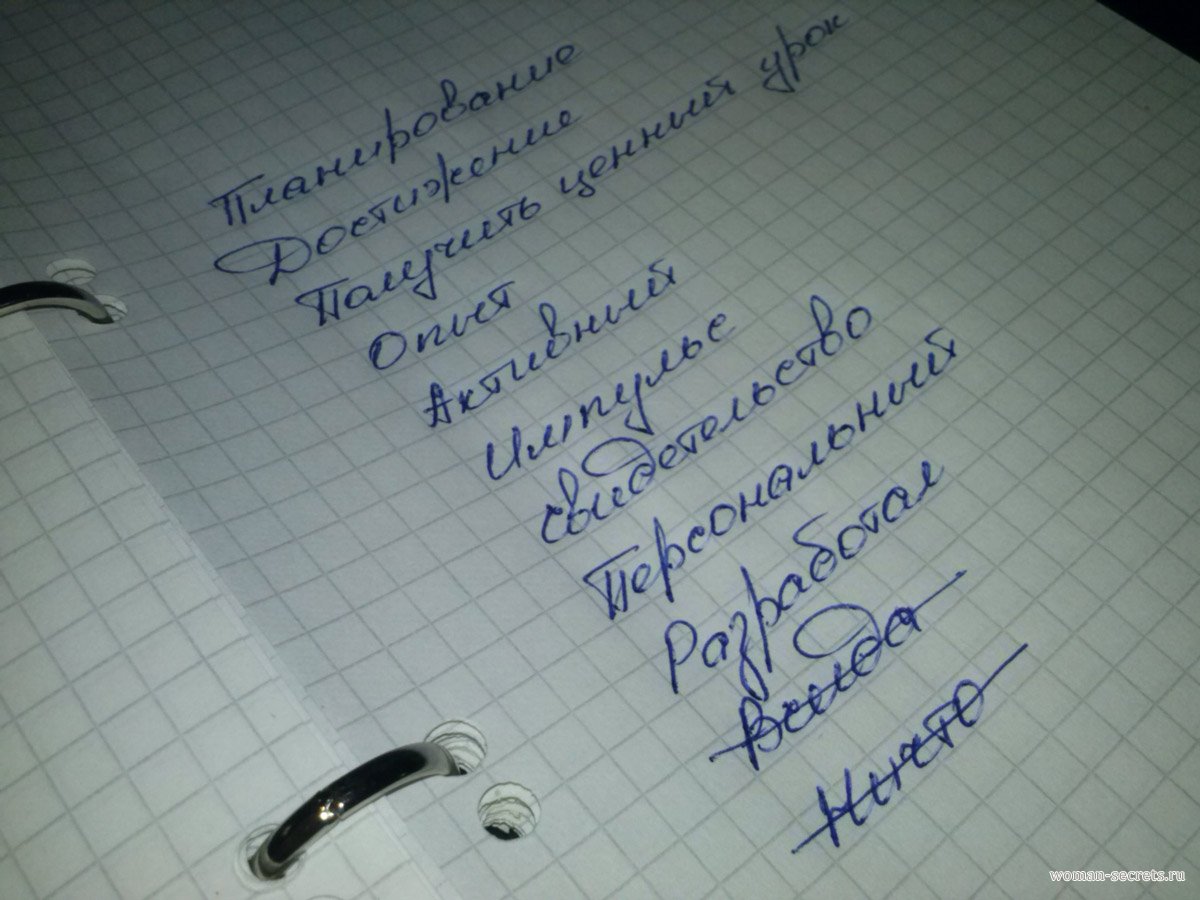 Планирование
Достижение
Получить ценный урок
Опыт
Активный
Импульс
Свидетельство
Персональный
Разработал
Никто
woman-secrets.ru